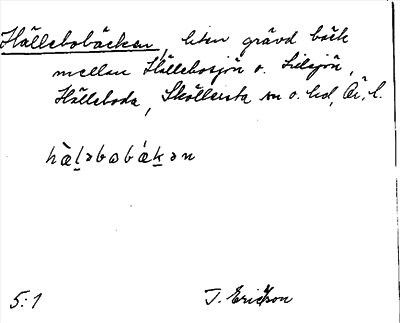 Hällebobäcken, liten grävd bäck
mellan Hällebosjön o. Lilsjön,
Hälleboda, Skölleista sn o. hd, Ör. l.
hæ̀l̠əbobǽk̠ən
5:1 T. Ericson